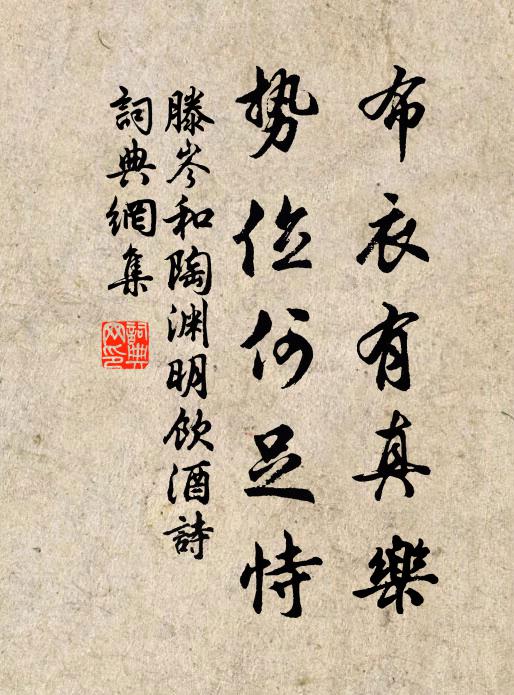 布衣有真樂
势位何足恃
滕岑和陶渊明飲酒詩
詞典網集
詞典
网印